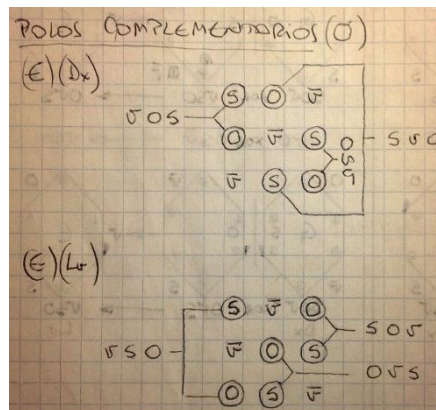 POLOS COMPLEMENTARIOS (O)
(E)(Dx)
S O V
VOS
O V S
OSV
SVO
V S O
(E)(Lv)
S V O
SOV
VSO
V O S
OVS
O S V